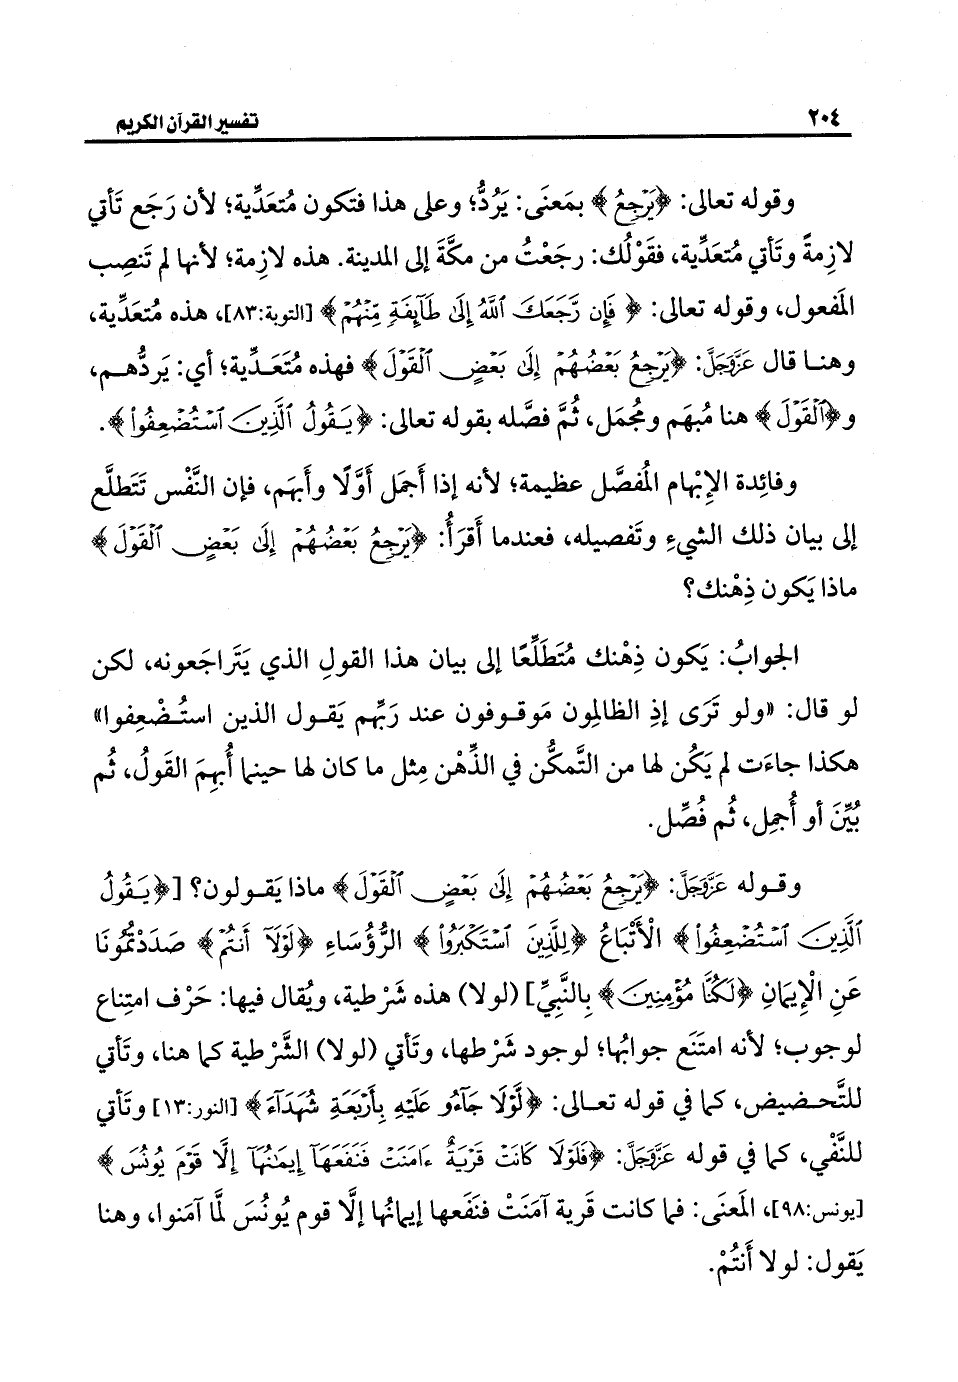 ٢٠٤ تفسير القرآن الكريم
وقوله تعالى: ﴿يَرْجِعُ﴾ بمَعنَى: يَرُدُّ؛ وعلى هذا فتكون مُتعَدِّية؛ لأن رَجَع تَأتي
لازِمةً وتَأتي مُتعَدِّية، فقَوْلُك: رجَعْتُ من مكَّةَ إلى المدينة. هذه لازِمة؛ لأنها لم تَنصِب
المَفعول، وقوله تعالى: ﴿فَإِن رَّجَعَكَ ٱللَّهُ إِلَىٰ طَآئِفَةٍ مِّنْهُمْ﴾ [التوبة:٨٣]، هذه مُتعَدِّية،
وهنـا قال عَزَّوَجَلَّ: ﴿يَرْجِعُ بَعْضُهُمْ إِلَىٰ بَعْضٍ ٱلْقَوْلَ﴾ فهذه مُتَعَـدِّية؛ أي: يَردُّهـم،
و﴿ٱلْقَوْلَ﴾ هنا مُبهَم ومُجمَل، ثُمَّ فصَّله بقوله تعالى: ﴿يَقُولُ ٱلَّذِينَ ٱسْتُضْعِفُوا۟﴾.
وفائِدة الإِبْهام المُفصَّل عظيمة؛ لأنه إذا أَجمَل أَوَّلًا وأَبهَم، فإن النَّفْس تَتَطلَّع
إلى بيان ذلك الشيءِ وتَفصيله، فعندما أَقرَأُ: ﴿يَرْجِعُ بَعْضُهُمْ إِلَىٰ بَعْضٍ ٱلْقَوْلَ﴾
ماذا يَكون ذِهْنك؟
الجوابُ: يَكون ذِهْنك مُتَطلِّعًا إلى بيان هذا القولِ الذي يَتَراجَعونه، لكن
لو قال: «ولو تَرَى إذِ الظالِمون مَوقـوفون عند رَبِّهم يَقـول الذين استُـضْعِفوا»
هكذا جاءَت لم يَكُن لها من التَّمكُّن في الذِّهْن مِثل ما كان لها حينما أُبهِمَ القَولُ، ثُم
بُيِّنَ أو أُجمِل، ثُم فُصِّل.
وقـوله عَزَّوَجَلَّ: ﴿يَرْجِعُ بَعْضُهُمْ إِلَىٰ بَعْضٍ ٱلْقَوْلَ﴾ ماذا يَقـولون؟ [﴿يَقُولُ
ٱلَّذِينَ ٱسْتُضْعِفُوا۟﴾ الْأَتْبَاعُ ﴿لِلَّذِينَ ٱسْتَكْبَرُوا۟﴾ الرُّؤَسَاءِ ﴿لَوْلَآ أَنتُمْ﴾ صَدَدْتُمُونَا
عَنِ الْإِيمَانِ ﴿لَكُنَّا مُؤْمِنِينَ﴾ بِالنَّبِيِّ] (لولا) هذه شَرْطية، ويُقال فيها: حَرْف امتِناع
لوجوب؛ لأنه امتَنَع جوابُها؛ لوجود شَرْطها، وتَأتي (لولا) الشَّرْطية كما هنا، وتَأتي
للتَّحـضيض، كما في قوله تعـالى: ﴿لَّوْلَا جَآءُو عَلَيْهِ بِأَرْبَعَةِ شُهَدَآءَ﴾ [النور:١٣] وتَأتي
للنَّفْي، كما في قوله عَزَّوَجَلَّ: ﴿فَلَوْلَا كَانَتْ قَرْيَةٌ ءَامَنَتْ فَنَفَعَهَآ إِيمَـٰنُهَآ إِلَّا قَوْمَ يُونُسَ﴾
[يونس:٩٨]، المَعنَى: فما كانت قَرية آمَنَتْ فنَفَعها إيمانُها إلَّا قوم يُونُسَ لمَّا آمَنوا، وهنا
يَقول: لولا أَنتُمْ.